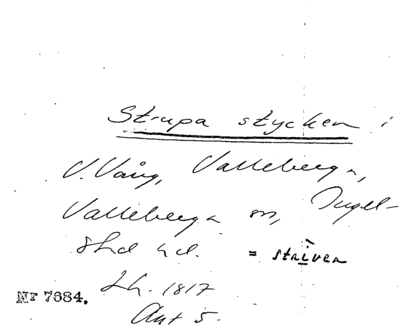 Strupa stycken i
V. Vång, Valleberga,
Valleberga sn, Ingel-
stad hd. = striven
Lh. 1817
Aht 5.
NF 7684.